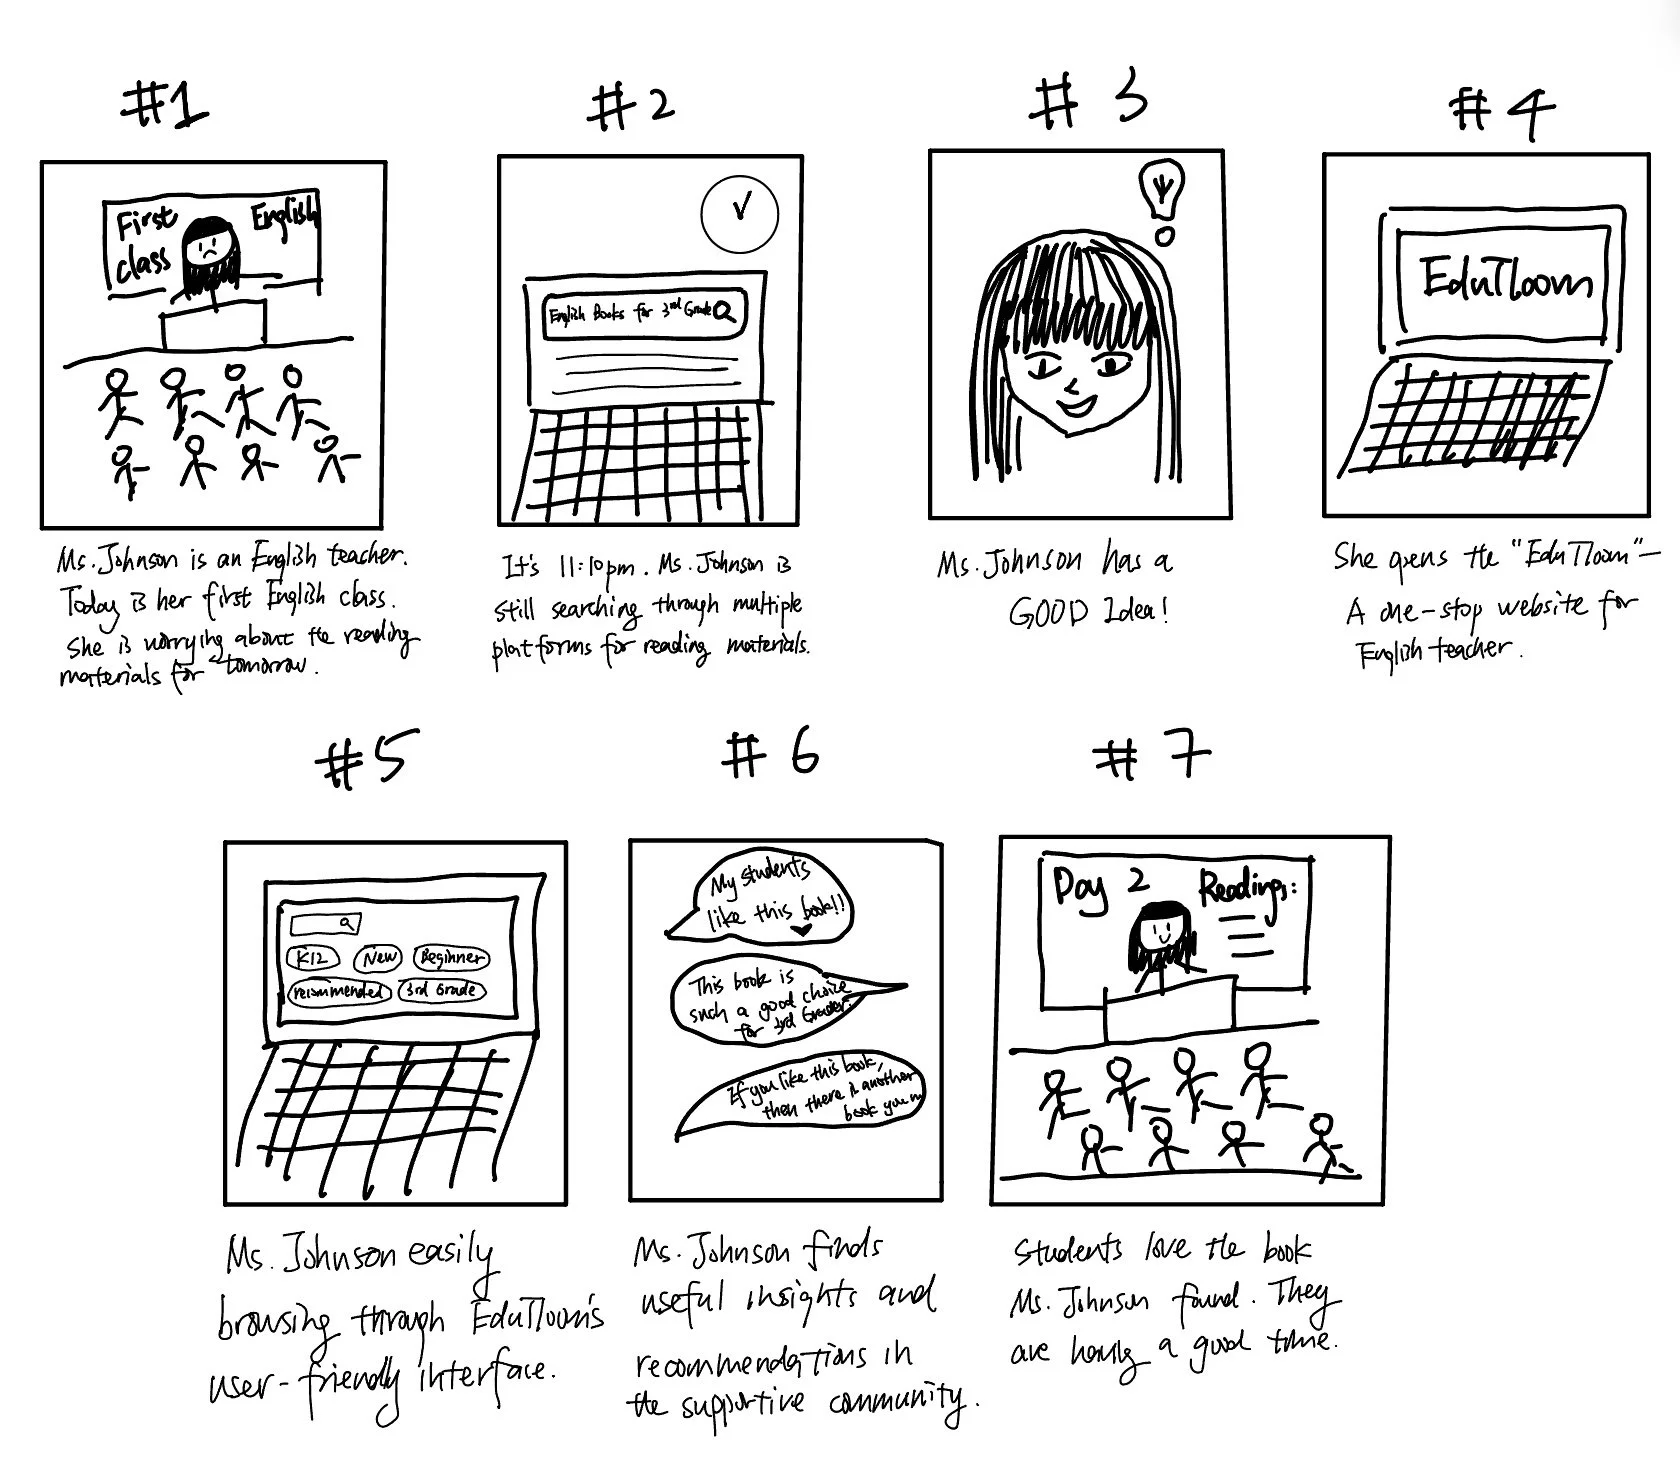 #1
First
class
English
Ms. Johnson is an English teacher.
Today is her first English class.
She is worrying about the reading
materials for tomorrow.
#2
English Books for 3rd Grade
It's 11:10pm. Ms. Johnson is
still searching through multiple
platforms for reading materials.
#3
Ms. Johnson has a
GOOD Idea!
#4
EduTloom
She opens the "EduTloom"—
A one-stop website for
English teacher.
#5
K12 New Beginner
recommended 3rd Grade
Ms. Johnson easily
browsing through EduTloom's
user-friendly interface.
#6
My students
like this book!!
This book is
such a good choice
for 3rd Grader.
If you like this book,
then there is another
book you m
Ms. Johnson finds
useful insights and
recommendations in
the supportive community.
#7
Day 2 Readings:
Students love the book
Ms. Johnson found. They
are having a good time.